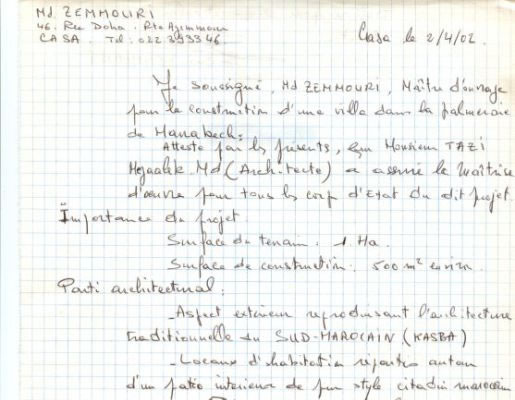 Md ZEMMOURI
46. Rue Doha. Rte Azemmour
CASA. Tel: 022 393346.
Casa le 2/4/02.
Je soussigné, Md ZEMMOURI, Maître d'ouvrage
pour la construction d'une villa dans la palmeraie
de Marrakech:
Atteste par les présents, que Monsieur TAZI
Md (Architecte) a assuré la Maîtrise
d'œuvre pour tous les corp d'Etat du dit projet.
Importance du projet
Surface du terrain. 1 Ha.
Surface de construction. 500 m² environ.
Parti architectural:
- Aspect extérieur reproduisant l'architecture
traditionnelle du SUD-MAROCAIN (KASBA)
- Locaux d'habitation répartis autour
d'un patio intérieur de pur style citadin marocain